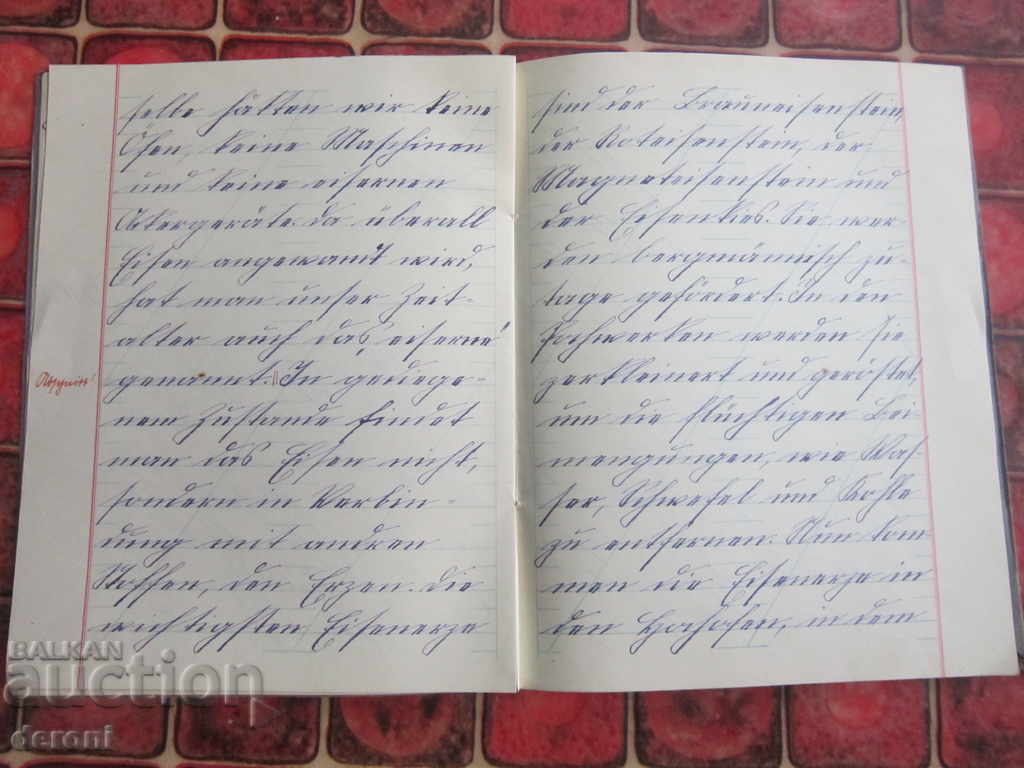 selbe hätten wir keine
Öfen, keine Maschinen
und keine eisernen
Akergeräte. Da überall
Eisen angewandt wird,
hat man unser Zeit-
alter auch das „eiserne"
genannt. || In gediege-
nem Zustande findet
man das Eisen nicht,
sondern in Verbin-
dung mit andren
Stoffen, den Erzen. Die
wichtigsten Eisenerze
Absynitt!
sind der Brauneisenstein,
der Roteisenstein, der
Magneteisenstein und
der Eisenkies. Sie wer-
den bergmännisch zu-
tage gefördert. In den
Pochwerken werden sie
zerkleinert und geröstet,
um die flüchtigen Bei-
mengungen, wie Was-
ser, Schwefel und Kohle
zu entfernen. Nun kom-
men die Eisenerze in
den Hochofen, in dem
BALKAN
auction
deroni